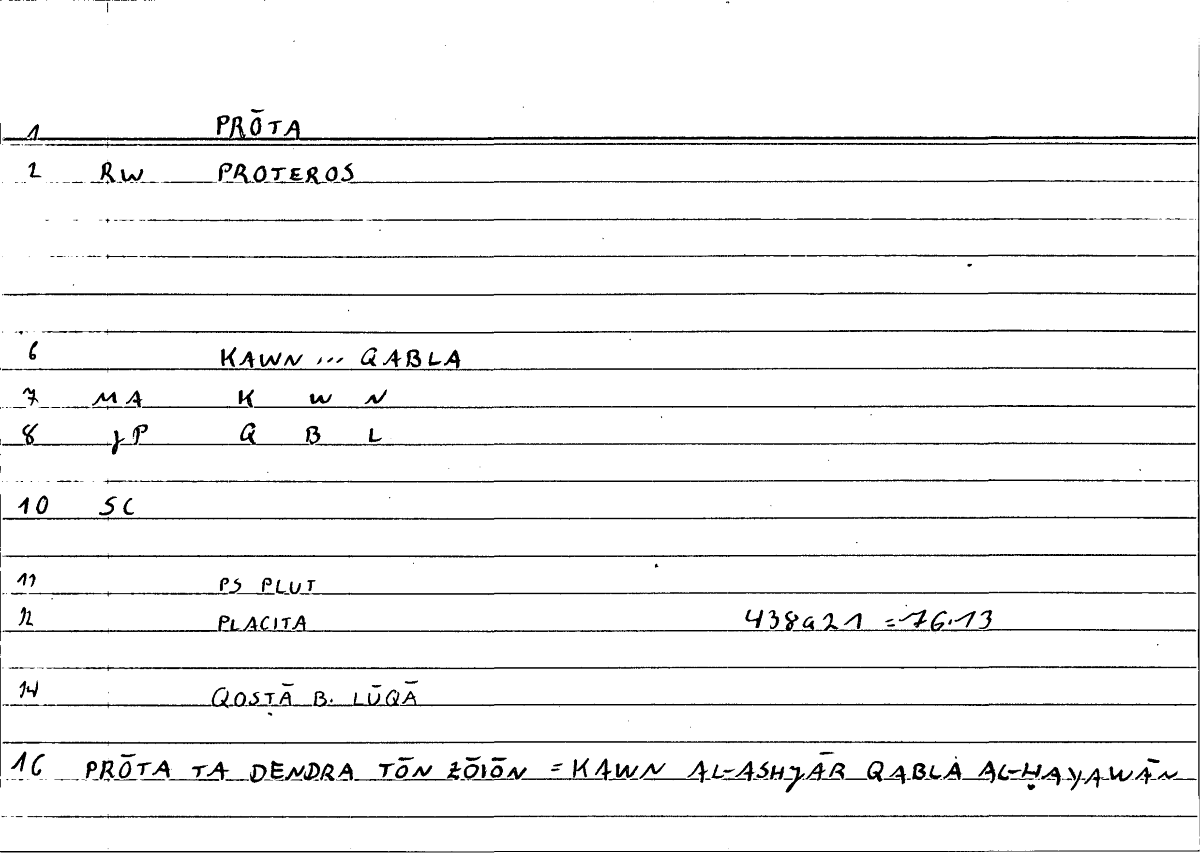 1 PRŌTA
2 RW PROTEROS
6 KAWN ... QABLA
7 MA K W N
8 JP Q B L
10 SC
11 PS PLUT
12 PLACITA 438a21 = 76.13
14 QOSṬĀ B. LŪQĀ
16 PRŌTA TA DENDRA TŌN ZŌIŌN = KAWN AL-ASHJĀR QABLA AL-ḤAYAWĀN